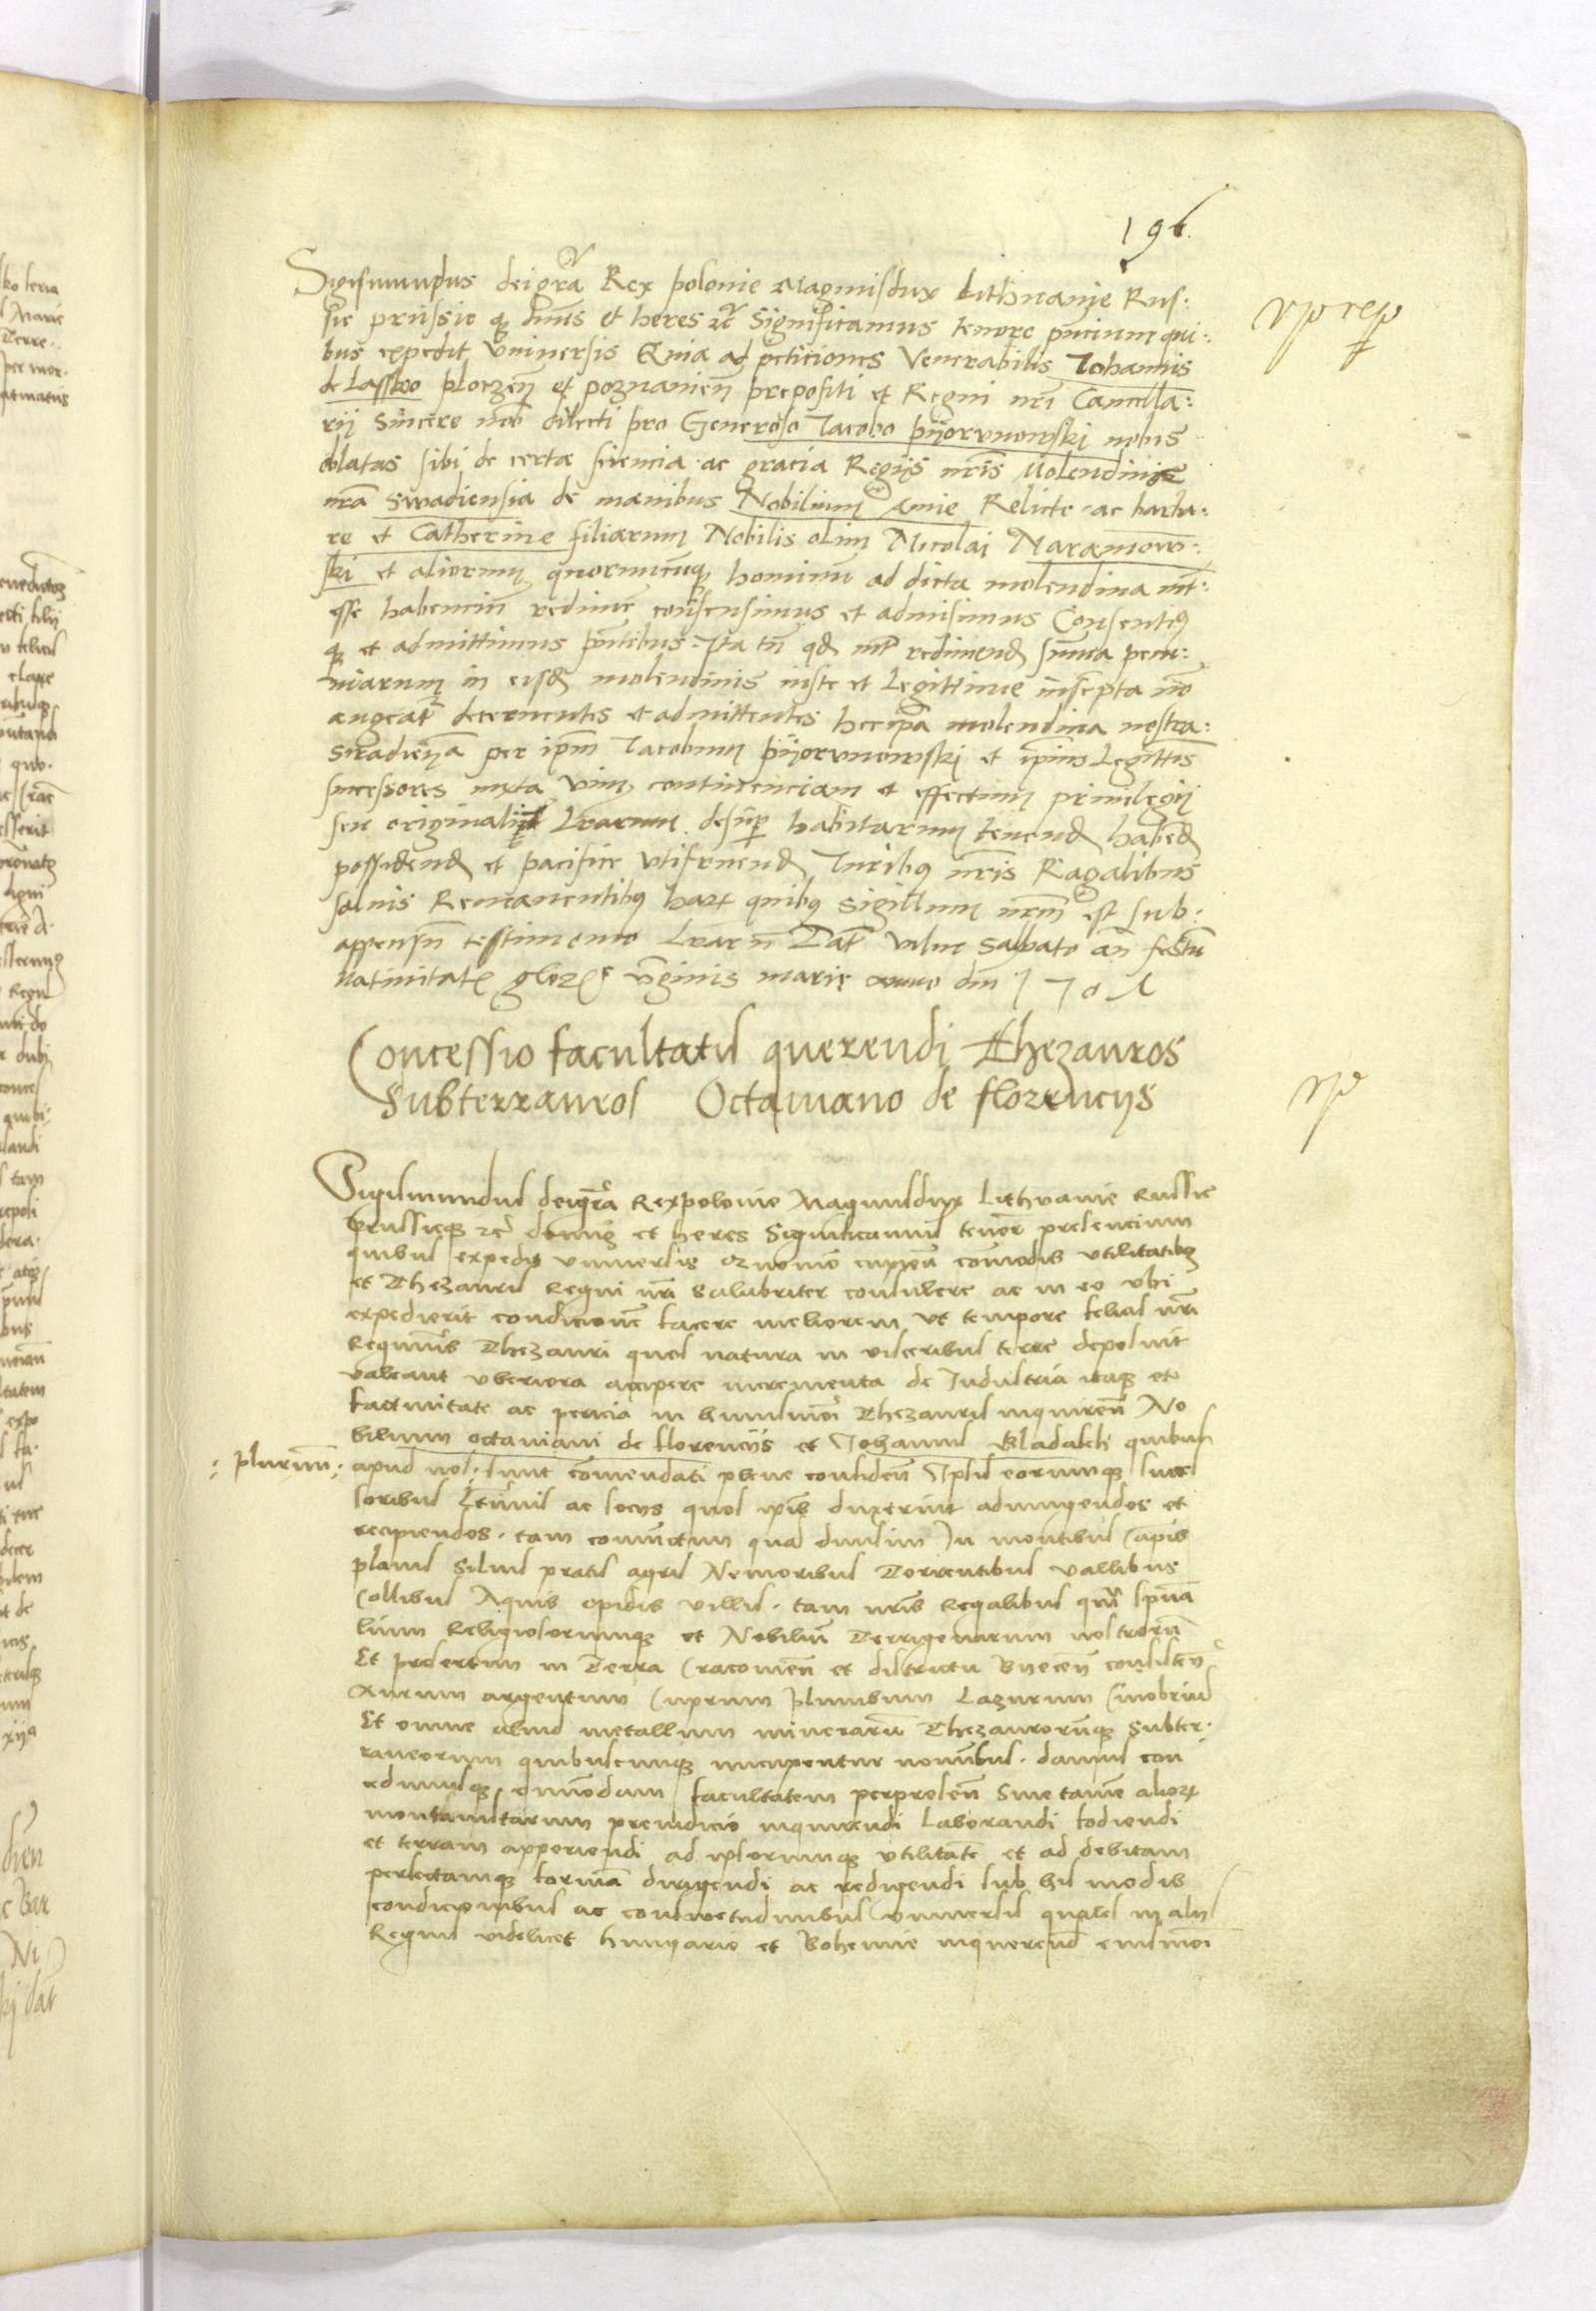 196.
Sigismundus dei gra Rex polonie Magnusdux Lithuanie Rus:
sie prussie q3 dnus et heres zc Significamus tenore pncium qui:
bus expedit vniuersis Quia ad peticiones Venerabilis Johannis
de Lassko ploczen et poznanien prepositi et Regni nri Cancella:
rij sincere nob dilecti pro Generoso Jacobo pijorvnowski nobis
oblatas sibi de certa sciencia ac gracia Regijs nris Molendina
nra Siradiensia de manibus Nobilium Anne Relicte ac barba:
re et Catherine filiarum Nobilis olim Nicolai Naramow:
ski et aliorum quorumcunq3 hominu ad dicta molendina int:
esse habenciu redime consensimus et admisimus Consentiq
q3 et admittimus pntibus. Ita tn qd redimend suma pecu:
niarum in eisd molendinis iuste et Legittime inscripta no
augeat decernentes et admittentes hec ipa molendina nostra:
Siradiena per ipm Jacobum pijorvnowski et ipius Legittis
successores iuxta vim continenciam et effectum priuilegij
seu originaliu Lrarum desup habitarum tenend habed
possidend et pacifice vtifruend Juribus nris Ragalibus
saluis Remanentibus harz quibus sigillum nrm est sub:
appensu testimonio Lraru Dat vilne sabbato an festu
natiuitatis gloze virginis marie anno dm
Concessio facultatis querendi Thezauros
Subterraneos Octauiano de florencijs
Sigismundus dei gra Rex polonie Magnusdux Lithuanie Russie
prussieq3 zc dominus et heres Significamus tenore presencium
quibus expedit vniuersis quomodo cupien comodis vtilitatibus
et Thezauris Regni nri salubriter consulere ac in eo vbi
expedierit condicionem facere meliorem vt tempore felicis nri
Regiminis Thezauri quos natura in visceribus terre deposuit
valeant vberiora accipere incrementa de Industria itaq3 et
factiuitate ac pericia in huiusmoi Thezauris inquiren No
bilium octauiani de florencijs et Johannis quibus
: plurimu : apud nos sunt comendati plene confiden Ipsis eorumq3 succes
soribus ac socijs quos ipis duxerint adiungendos et
recipiendos tam coniunctim qua diuisim In montibus Capis
planis siluis pratis agris Nemoribus Torrentibus vallibus
Collibus Aquis opidis villis tam nris Regalibus qua spiritua
lium Religiosorumq3 et Nobiliu Terrigenarum nostroru
Et presertim in Terra Cracouien et districtu Byecen consisten
Aurum argentum Cuprum plumbum Lazurum Cinobriu
Et omne aliud metallum mineraru Thezauroruq3 subter:
raneorum quibuscunq3 nucupentur nominibus damus con
cedimusq3 omnimodam facultatem per presen Sine tame alioz
montanistarum preiudicio inquirendi laborandi fodiendi
et terram apperiendi ad ipsorumq3 vtilitate et ad debitam
perfectamq3 forma dirigendi ac redigendi sub his modis
condicionibus ac consuetudinibus vniuersis quales in alijs
Regnis videlicet hungarie et Bohemie inquerend